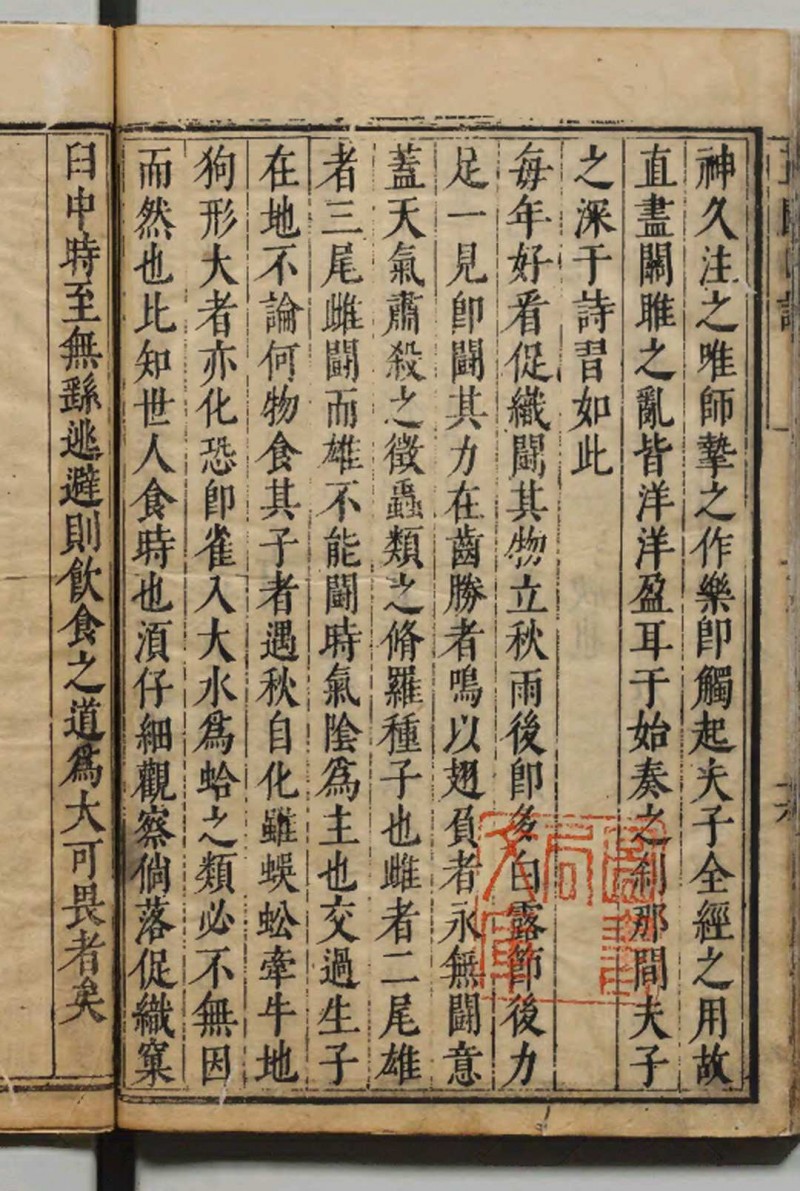 神久注之唯師摯之作樂卽觸起夫子全經之用故
直盡關雎之亂皆洋洋盈耳于始奏之剎那間夫子
之深于詩習如此
每年好看促織鬪其物立秋雨後卽多白露節後力
足一見卽鬪其力在齒勝者鳴以翅負者永無鬪意
蓋天氣肅殺之徵蟲類之脩羅種子也雌者二尾雄
者三尾雌鬪而雄不能鬪時氣陰爲主也交過生子
在地不論何物食其子者遇秋自化雖蜈蚣牽牛地
狗形大者亦化恐卽雀入大水爲蛤之類必不無因
而然也比知世人食時也湏仔細觀察倘落促織窠
臼中時至無繇逃避則飲食之道爲大可畏者矣